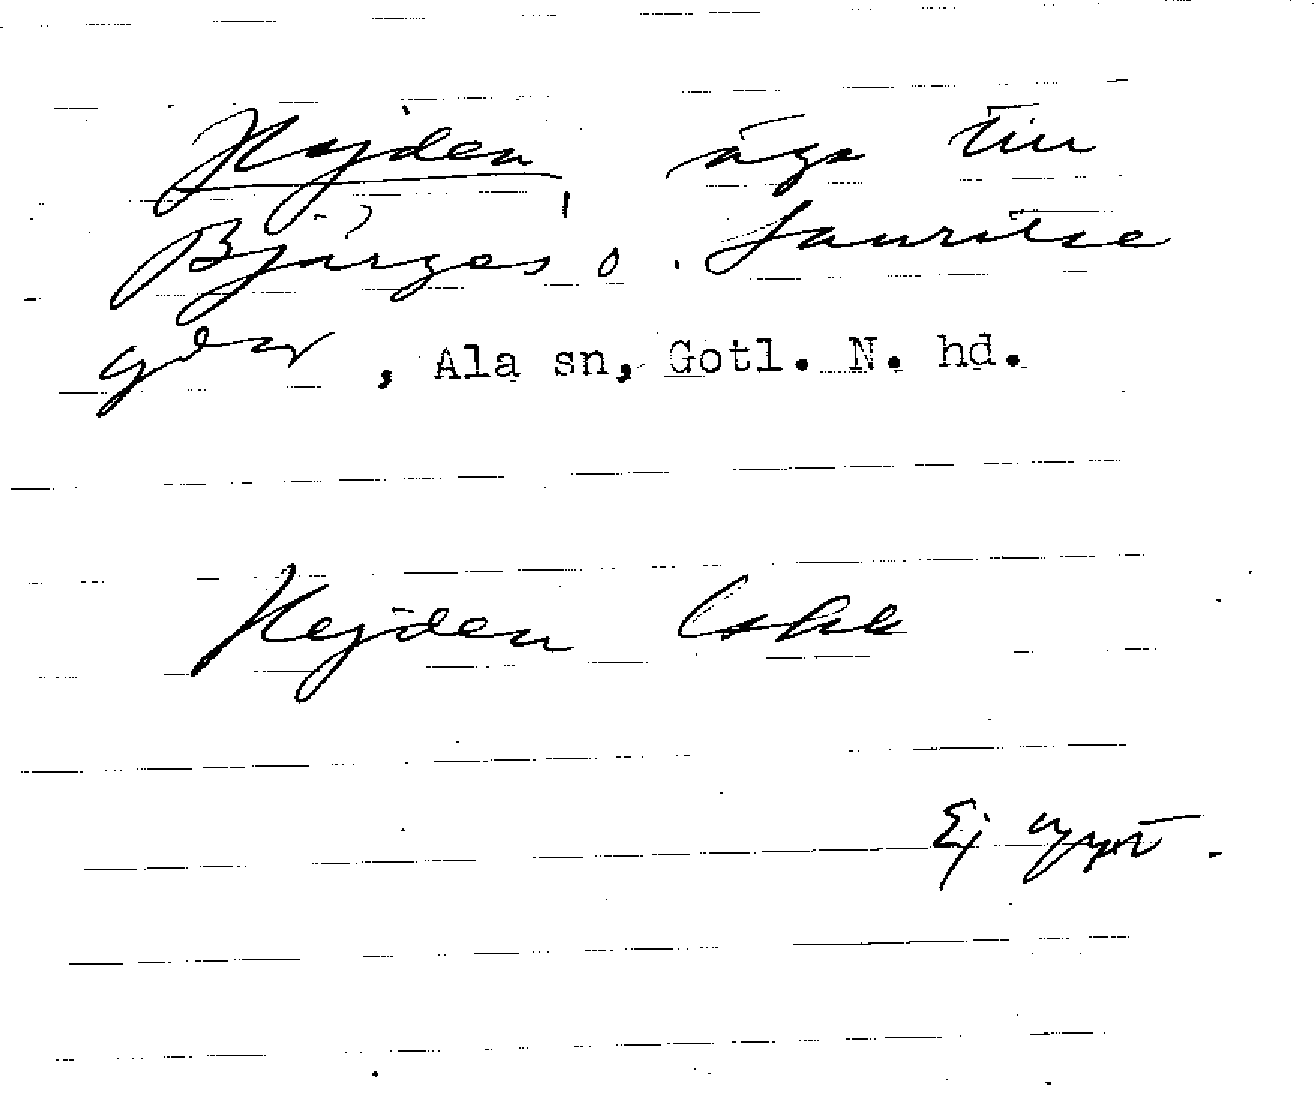 Hejden, äga till
Bjärges o. Lauritse
gdar, Ala sn, Gotl. N. hd.
Hejden
Ej